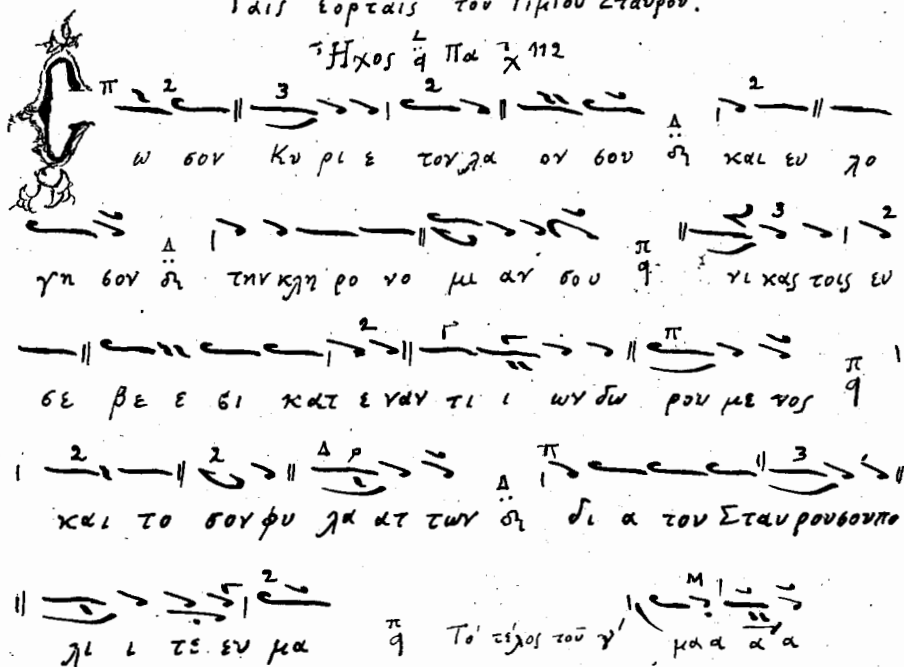 Ταῖς ἑορταῖς τοῦ Τιμίου Σταυροῦ.
Ἦχος Πα 112
ω σον Κυ ρι ε τον λα ον σου και ευ λο
γη σον την κλη ρο νο μι αν σου νι κας τοις ευ
σε βε ε σι κατ ε ναν τι ι ων δω ρου με νος
και το σον φυ λα ατ των δι α τον Σταυ ρου σου πο
λι ι τε ευ μα Τὸ τέλος τοῦ γ' μα α α α